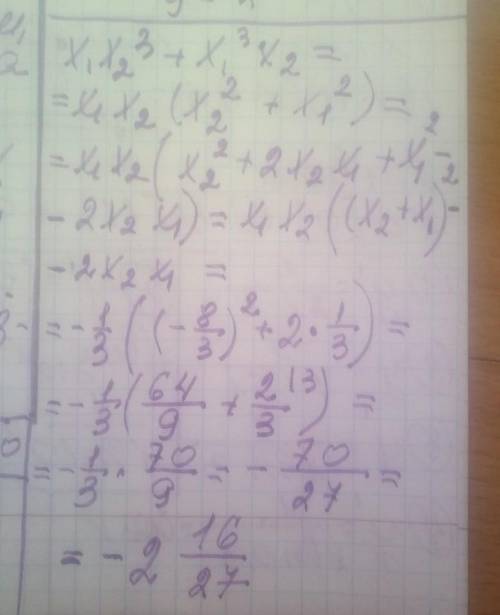 x₁x₂³ + x₁³x₂ =
= x₁x₂(x₂² + x₁²) =
= x₁x₂(x₂² + 2x₂x₁ + x₁² -
- 2x₂x₁) = x₁x₂((x₂+x₁)² -
- 2x₂x₁ =
= -1/3((-8/3)² + 2·1/3) =
= -1/3(64/9 + 2/3 ⁽³⁾) =
= -1/3 · 70/9 = -70/27 =
= -2 16/27